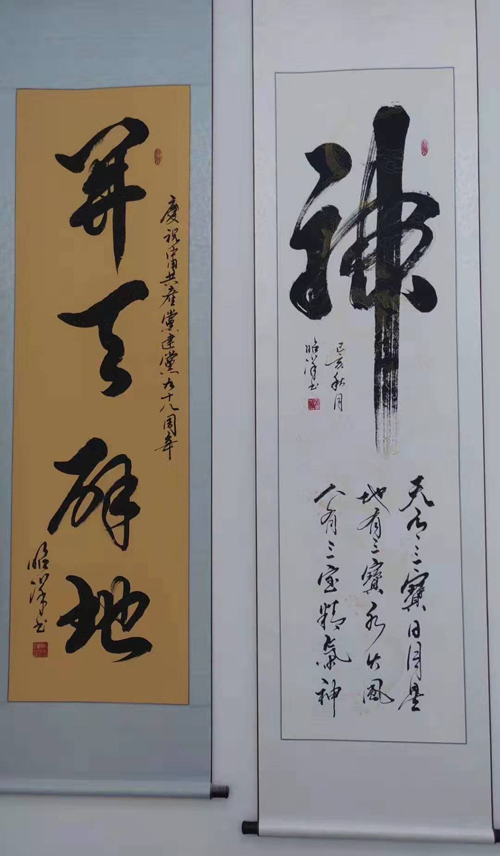 慶祝中國共產黨建黨九十八周年
開天辟地
昭洋书
神
己亥秋月
昭洋书
天有三寶日月星
地有三寶水火風
人有三宝精氣神